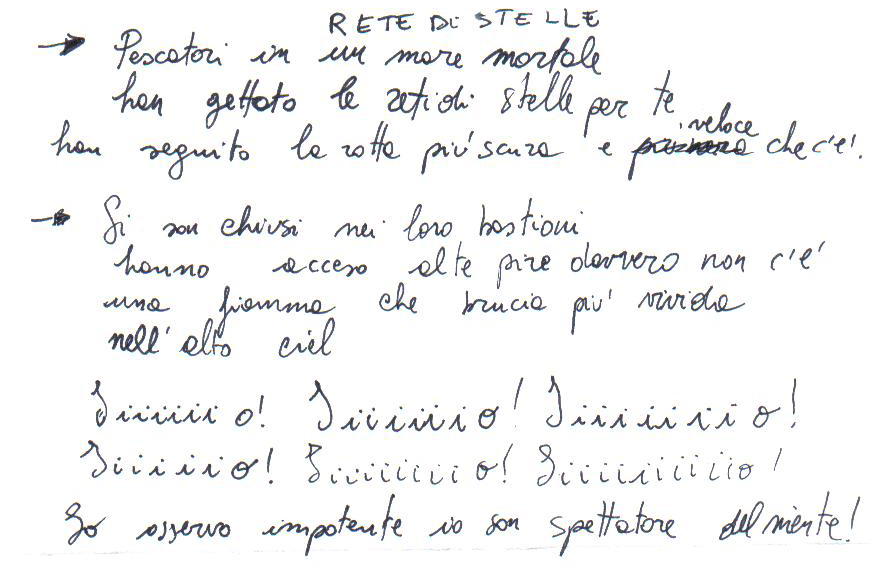 RETE DI STELLE
→ Pescatori in un mare mortale
han gettato le reti di stelle per te
han seguito la rotta piu' scura e veloce che c'e'.
→ Si son chiusi nei loro bastioni
hanno acceso alte pire davvero non c'e'
una fiamma che brucia piu' vivida
nell'alto ciel
Iiiiiii o! Iiiiiii o! Iiiiiiii o!
Iiiiiio! Iiiiiiiii o! Iiiiiiiiiiio!
Io osservo impotente io son spettatore del niente!